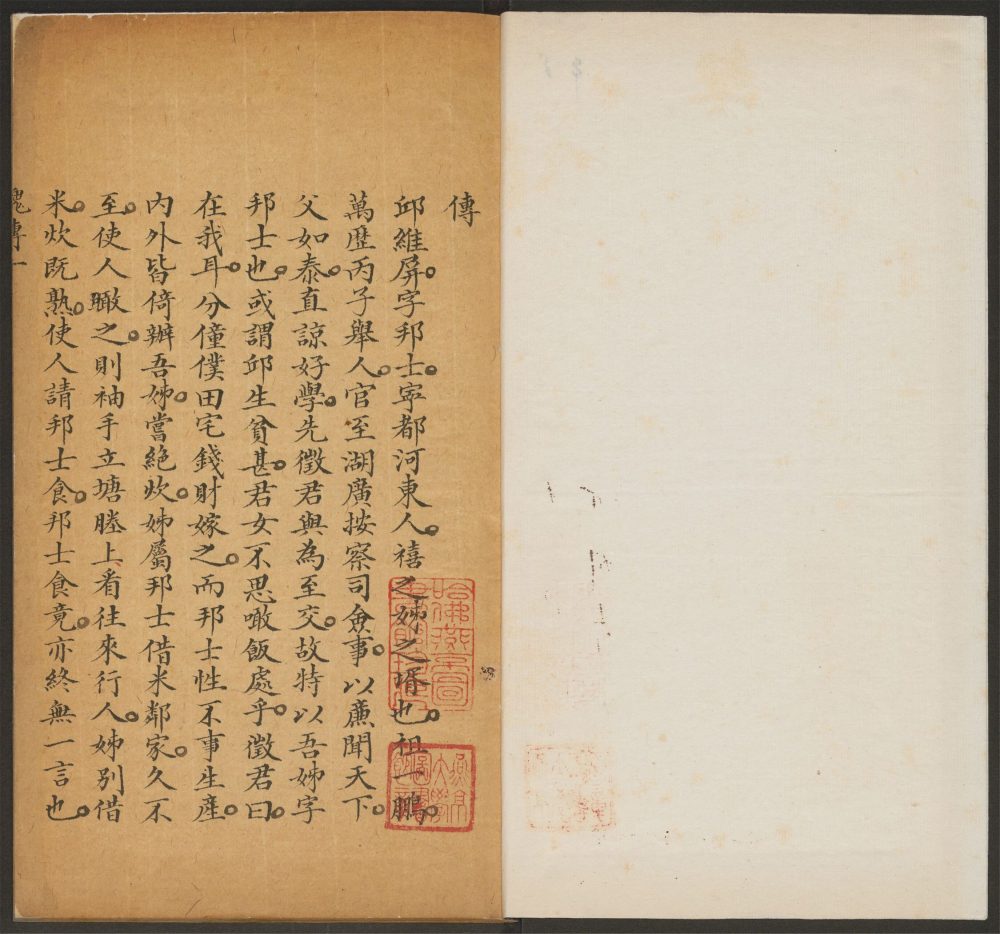 傳
邱維屏。字邦士。寧都河東人。禧之姊之壻也。祖一鵬。
萬歷丙子舉人。官至湖廣按察司僉事。以廉聞天下。
父如泰。直諒好學。先徵君與為至交。故特以吾姊字
邦士也。或謂邱生貧甚。君女不思噉飯處乎。徵君曰。
在我耳。分僮僕田宅錢財嫁之。而邦士性不事生產。
內外皆倚辦吾姊。嘗絶炊。姊屬邦士借米鄰家。久不
至。使人瞰之。則袖手立塘塍上看往來行人。姊別借
米。炊既熟。使人請邦士食。邦士食竟。亦終無一言也。
傳一
哈佛燕京圖